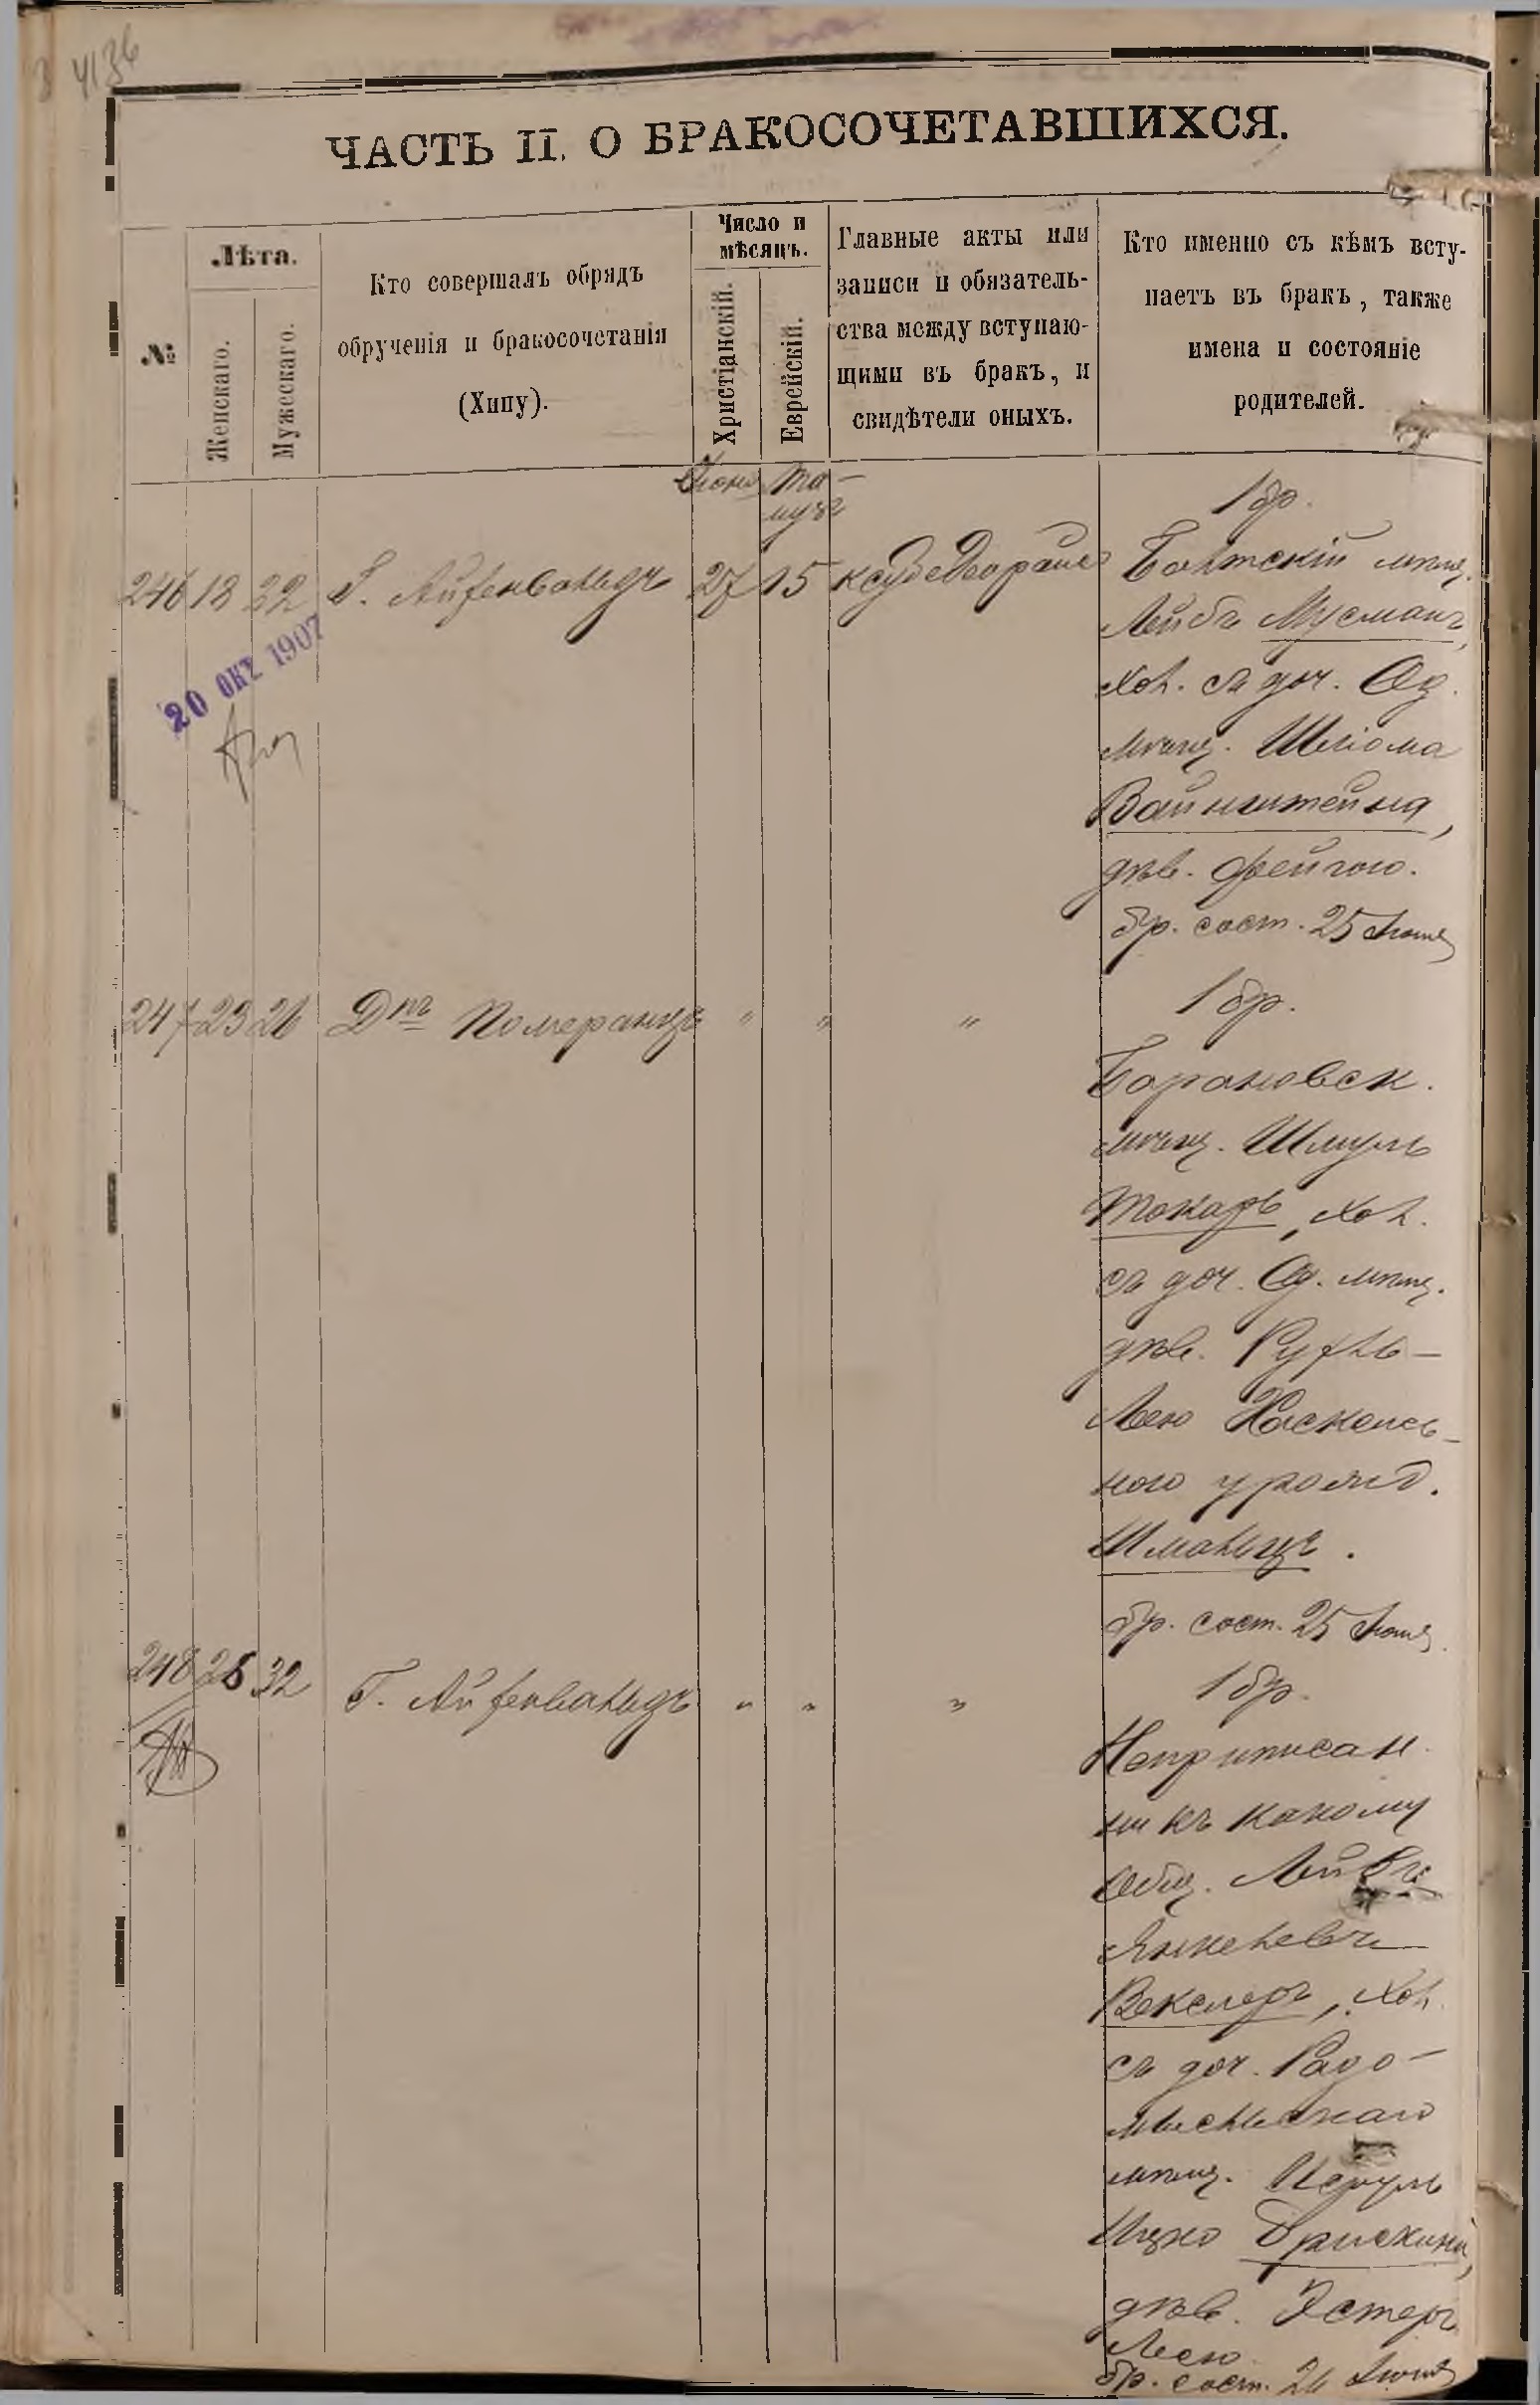 4136
ЧАСТЬ II. О БРАКОСОЧЕТАВШИХСЯ.
№
Лѣта.
Женскаго.
Мужескаго.
Кто совершалъ обрядъ
обрученія и бракосочетанія
(Хипу).
Число и
мѣсяцъ.
Христіанскій.
Еврейскій.
Главные акты или
записи и обязатель-
ства между вступаю-
щими въ бракъ, и
свидѣтели оныхъ.
Кто именно съ кѣмъ всту-
паетъ въ бракъ, также
имена и состояніе
родителей.
Іюнь
Та-
музъ
246 18 22 Г. Айзенвальдъ 27 15
1 бр.
Балтскій мѣщ.
Лейбъ Мусманъ,
хол. съ доч. Од.
мѣщ. Шліома
Вайнштейна,
дѣв. Фейгою.
бр. сост. 25 Іюня
20 ОКТ 1907
247 23 26 Д-ръ Померанцъ " " "
1 бр.
Барановск.
мѣщ. Шмуль
Токарь, хол.
съ доч. Од. мѣщ.
дѣв. Рухль-
Лею
урожд.
Шмальцъ.
бр. сост. 25 Іюня.
248 28 32 Г. Айзенвальдъ " " "
1 бр.
Неприписан.
ни къ какому
общ. Лейбъ
Янкелевъ
Векслеръ, хол.
съ доч. Радо-
мысльскаго
мѣщ.
Ицко Брискина,
дѣв. Эстеръ
Леею
бр. сост. 26 Іюня